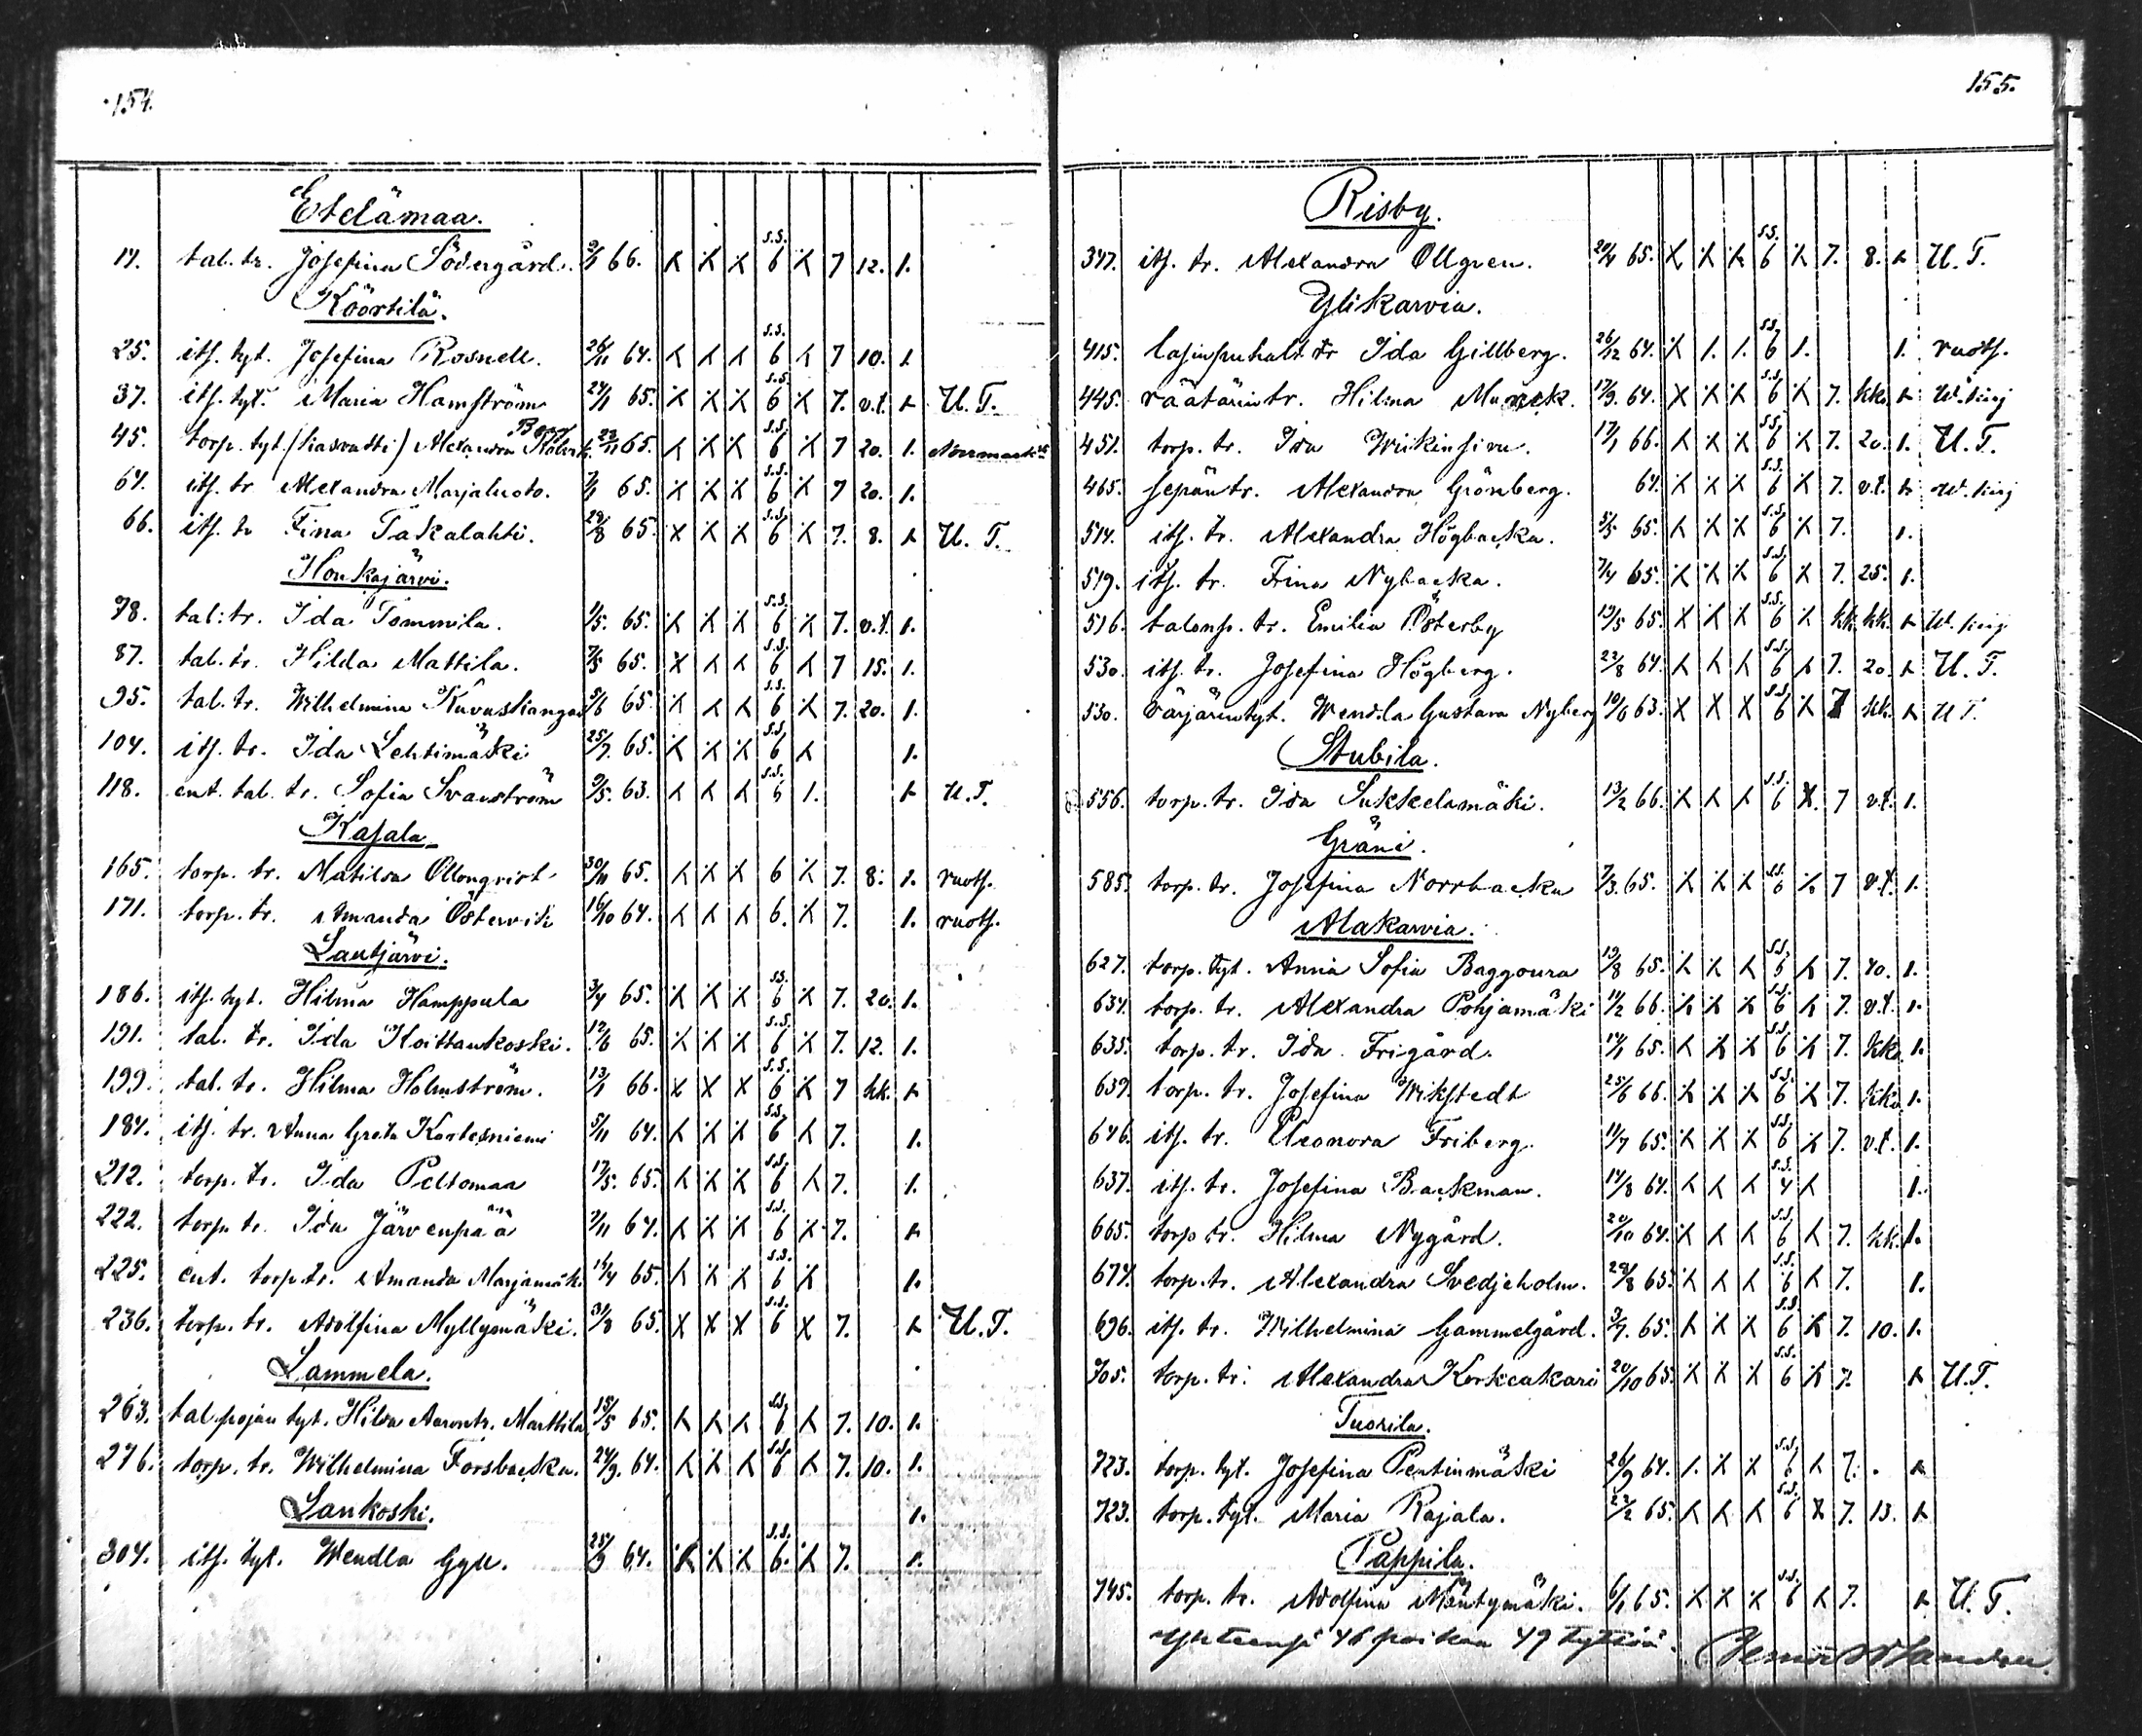 154.
Etelämaa.
14. tal. tr. Josefina Södergård. 66. X X X s.s. 6 X 7 12. 1.
Köörtilä.
25. its. tyt. Josefina Rosnell. 26/11 64. X X X s.s. 6 X 7 10. 1.
37. its. tyt. Maria Hamström 24/1 65. X X X s.s. 6 X 7. v.t. U. T.
45. torp. tyt. (kasvatti) Alexandra 65. X X X s.s. 6 X 7 20. 1.
64. its. tr Alexandra Marjaluoto. 65. X X X s.s. 6 X 7 20. 1.
66. its. tr Fina Takalahti. 29/8 65. X X X s.s. 6 X 7. 8. U. T.
Honkajärvi.
78. tal. tr. Ida Tommila. 1/5. 65. X X X s.s. 6 X 7. v.t. 1.
87. tal. tr. Hilda Mattila. 65. X X X s.s. 6 X 7 15. 1.
95. tal. tr. Wilhelmina Kuvaskangas 5/6 65. X X X s.s. 6 X 7. 20. 1.
104. its. tr. Ida Lehtimäki 25/7. 65. X X X s.s. 6 X 1.
118. ent. tal. tr. Sofia Svanström 9/5. 63. X X X s.s. 6 1. U. T.
Kasala
165. torp. tr. Matilda Ollonqvist 30/11 65. X X X 6 X 7. 8. 1. ruots.
171. torp. tr. Amanda Östervik 16/10 64. X X X 6. X 7. 1. ruots.
Lautjärvi.
186. its. tyt. Hilma Hamppula 3/4 65. X X X s.s. 6 X 7. 20. 1.
191. tal. tr. Ida Koittankoski. 12/6 65. X X X s.s. 6 X 7. 12. 1.
199. tal. tr. Hilma Holmström. 13/1 66. X X X s.s. 6 X 7 kk.
184. its. tr. Anna Greta Kortesniemi 5/11 64. X X X s.s. 6 X 7. 1.
212. torp. tr. Ida Peltomaa 17/5. 65. X X X s.s. 6 X 7. 1.
222. torp. tr. Ida Järvenpää 7/11 64. X X X s.s. 6 X 7.
225. ent. torp. tr. Amanda Marjamäk. 14/4 65. X X X s.s. 6 X 1.
236. torp. tr. Adolfina Myllymäki. 31/8 65. X X X s.s. 6 X 7. U. T.
Lammela.
263. tal. pojan tyt. Hilda Aarontr. Marttila 15/5 65. X X X s.s. 6 X 7. 10. 1.
276. torp. tr. Wilhelmina Forsbacka. 24/9. 64. X X X s.s. 6 X 7. 10. 1.
Lankoski. 1.
304. its. tyt. Wendla Gyll. 25/9 64. X X X s.s. 6. X 7. 1.
155.
Risby.
347. its. tr. Alexandra Ollgren. 20/4 65. X X X s.s. 6 X 7. 8. U. T.
Ylikarvia.
415. lasinpuhalt. tr Ida Gillberg. 26/12 64. X 1. 1. s.s. 6 1. 1. ruots.
445. räätärin tr. Hilma Munck. 17/9. 64. X X X s.s. 6 X 7. kk. W. kirj
451. torp. tr. Ida Wiikinsivu. 17/1 66. X X X s.s. 6 X 7. 20. 1. U. T.
465. sepän tr. Alexandra Grönberg. 64. X X X s.s. 6 X 7. v.t. W. kirj
514. its. tr. Alexandra Högbacka. 65. X X X s.s. 6 X 7. 1.
519. its. tr. Fina Nybacka. 7/4 65. X X X s.s. 6 X 7. 25. 1.
516. talonp. tr. Emilia Österby 19/5 65. X X X s.s. 6 X kk. kk. W. kirj
530. its. tr. Josefina Högberg. 22/8 64. X X X s.s. 6 X 7. 20. U. T.
530. värjärin tyt. Wendla Gustava Nyberg 10/6 63. X X X s.s. 6 X 7 kk. U T.
Stubila.
556. torp. tr. Ida Sukkelamäki. 13/2 66. X X X s.s. 6 X. 7 v.t. 1.
Gräni.
585. torp. tr. Josefina Norrbacka 7/3. 65. X X X s.s. 6 X 7 v.t. 1.
Alakarvia.
627. torp. tyt. Anna Sofia Baggoura 19/8 65. X X X s.s. 5 X 7. 40. 1.
634. torp. tr. Alexandra Pohjamäki 11/2 66. X X X s.s. 6 X 7. v.t. 1.
635. torp. tr. Ida Frigård. 65. X X X s.s. 6 X 7. kk. 1.
639. torp. tr. Josefina Wikstedt 25/6 66. X X X s.s. 6 X 7. kk. 1.
646. its. tr. Eleonora Friberg. 11/7 65. X X X s.s. 6 X 7. v.t. 1.
637. its. tr. Josefina Backman. 14/8 64. X X X s.s. 4 X 1.
665. torp tr. Hilma Nygård. 20/10 64. X X X s.s. 6 X 7. kk. 1.
674. torp. tr. Alexandra Svedjeholm. 29/8 65. X X X s.s. 6 X 7. 1.
696. its. tr. Wilhelmina Gammelgård. 65. X X X s.s. 6 X 7. 10. 1.
705. torp. tr. Alexandra Korkeakari 20/10 65. X X X s.s. 6 X 7. U. T.
Tuorila.
723. torp. tyt. Josefina Pentinmäki 26/9 64. 1. X X s.s. 6 X 7.
723. torp. tyt. Maria Rajala. 22/2 65. X X X s.s. 6 X 7. 13.
Pappila.
745. torp. tr. Adolfina Mäntymäki. 6/1 65. X X X s.s. 6 X 7. U. T.
Yhteensä 46 poikaa 49 tyttöä.